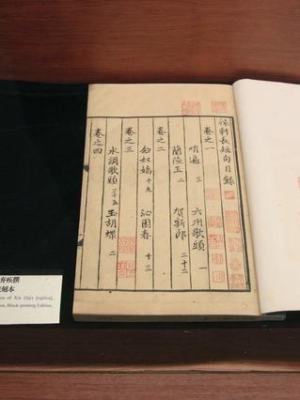 稼軒長短句目錄
卷之一
哨遍 二 六州歌頭 一
蘭陵王 二 賀新郎 二十二
卷之二
念奴嬌 十九 沁園春 十三
卷之三
水調歌頭 三十五 玉胡蝶 二
卷之四
弃疾撰
刻本
of Xin Qiji's
Block-printing Edition.